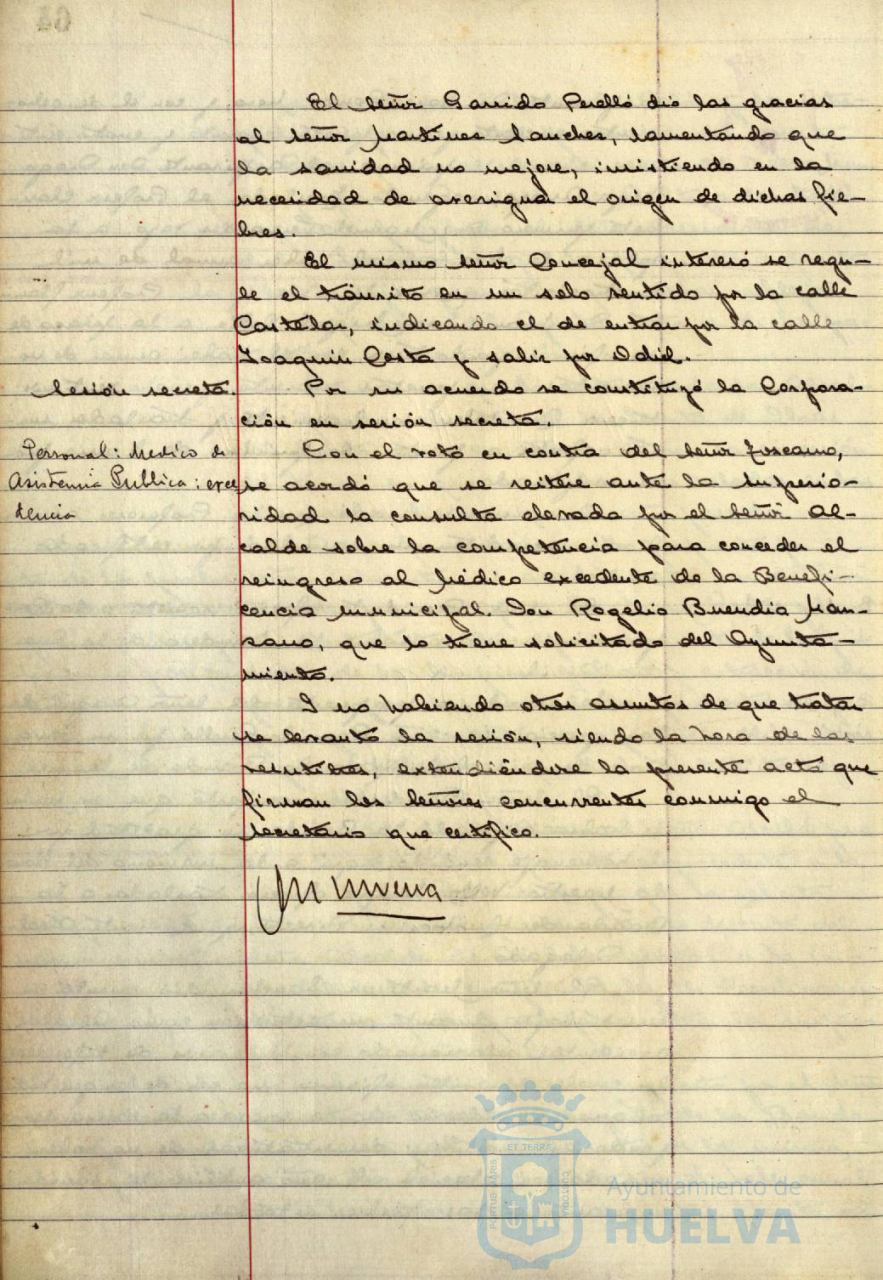 El señor Garrido Perelló dió las gracias
al señor Martinez Sanchez, lamentando que
la sanidad no mejore, insistiendo en la
necesidad de averiguar el origen de dichas fie-
bres.
El mismo señor Concejal interesó se regu-
le el tránsito en un solo sentido por la calle
Castelar, indicando el de entrar por la calle
Joaquin Costa y salir por Odiel.
Sesión secreta.
Por su acuerdo se constituyó la Corpora-
ción en sesión secreta.
Personal: Medico de
Asistencia Publica: exce
dencia
Con el voto en contra del señor Toscano,
se acordó que se reitere ante la Superio-
ridad la consulta elevada por el señor Al-
calde sobre la competencia para conceder el
reingreso al Médico excedente de la Benefi-
cencia Municipal. Don Rogelio Buendia Man-
zano, que lo tiene solicitado del Ayunta-
miento.
Y no habiendo otros asuntos de que tratar
se levantó la sesión, siendo la hora de las
extendiéndose la presente acta que
firman los Señores concurrentes conmigo el
Secretario que certifico.
ET TERRA
Ayuntamiento de
HUELVA